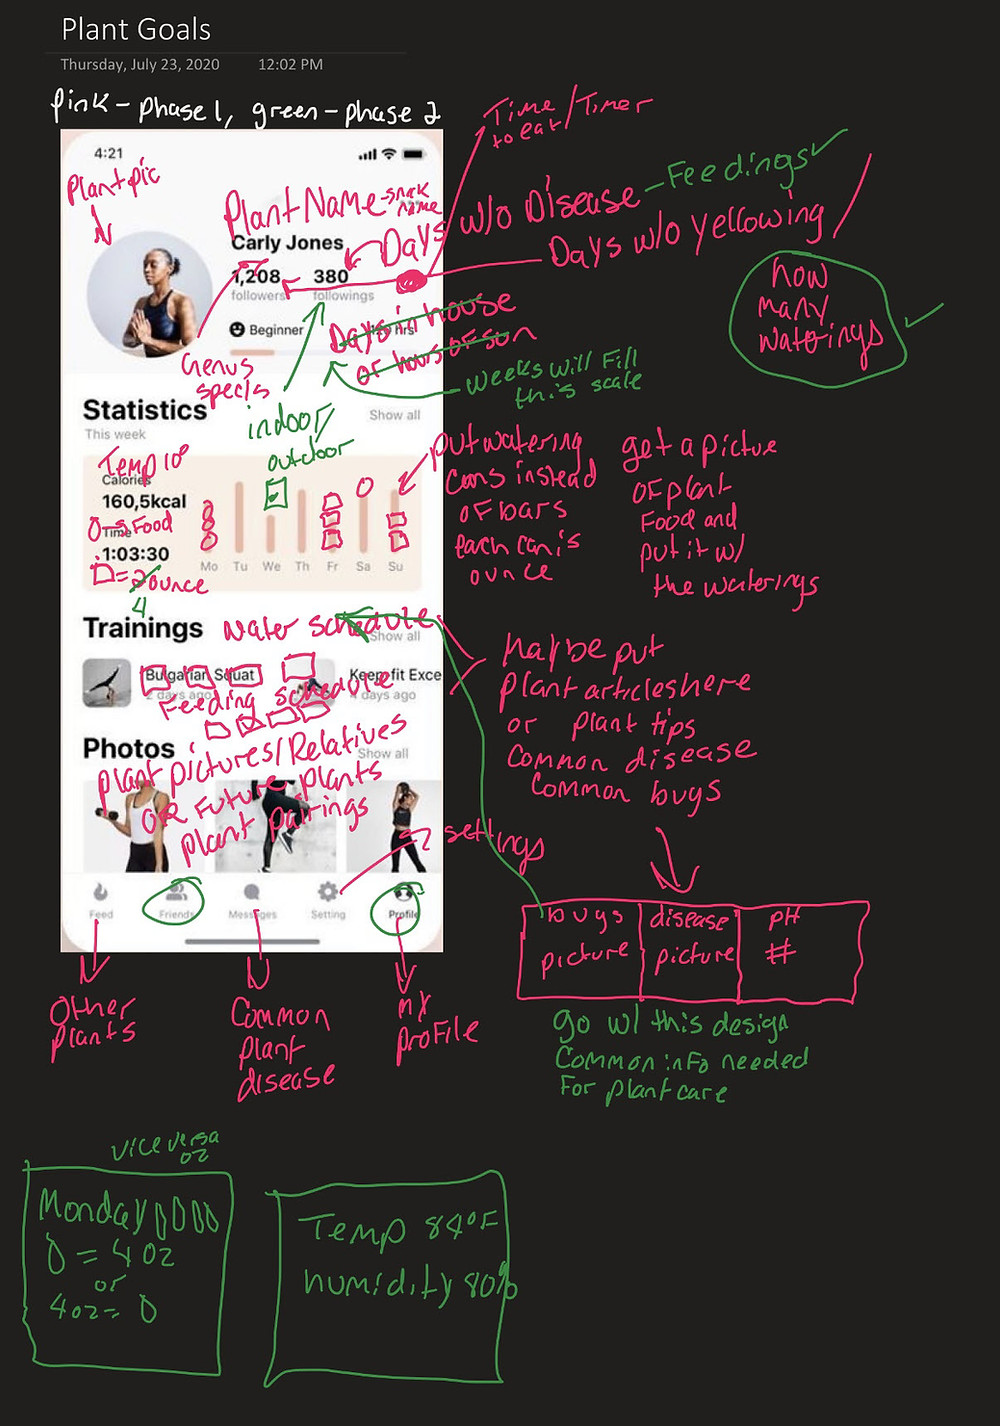 Plant Goals
Thursday, July 23, 2020 12:02 PM
pink - phase 1, green - phase 2
Time / Timer
to eat
4:21
Plant pic
Plant Name - snak name
Carly Jones
Days w/o Disease - Feedings
Days w/o yellowing
1,208 380
followers followings
Beginner
Days in house
or hours of sun
how
many
waterings
Genus
species
weeks will fill
this scale
indoor/
outdoor
Statistics
This week
Show all
Temp 10°
Calories
160,5kcal
= Food
Time
1:03:30
= 2 ounce
4
Mo Tu We Th Fr Sa Su
put watering
cans instead
of bars
each can is
ounce
get a picture
of plant
Food and
put it w/
the waterings
Trainings
water schedule
Show all
Bulgarian Squat
2 days ago
Keep fit Exce
days ago
Feeding schedule
Maybe put
plant articles here
or plant tips
Common disease
Common bugs
Photos
Show all
plant pictures/Relatives
OR Future plants
plant pairings
settings
Feed Friends Messages Setting Profile
bugs disease pH
picture picture #
Other
plants
Common
plant
disease
my
profile
go w/ this design
Common info needed
For plant care
vice versa
oz
Monday
0 = 4 oz
or
4 oz = 0
Temp 84°F
humidity 80%